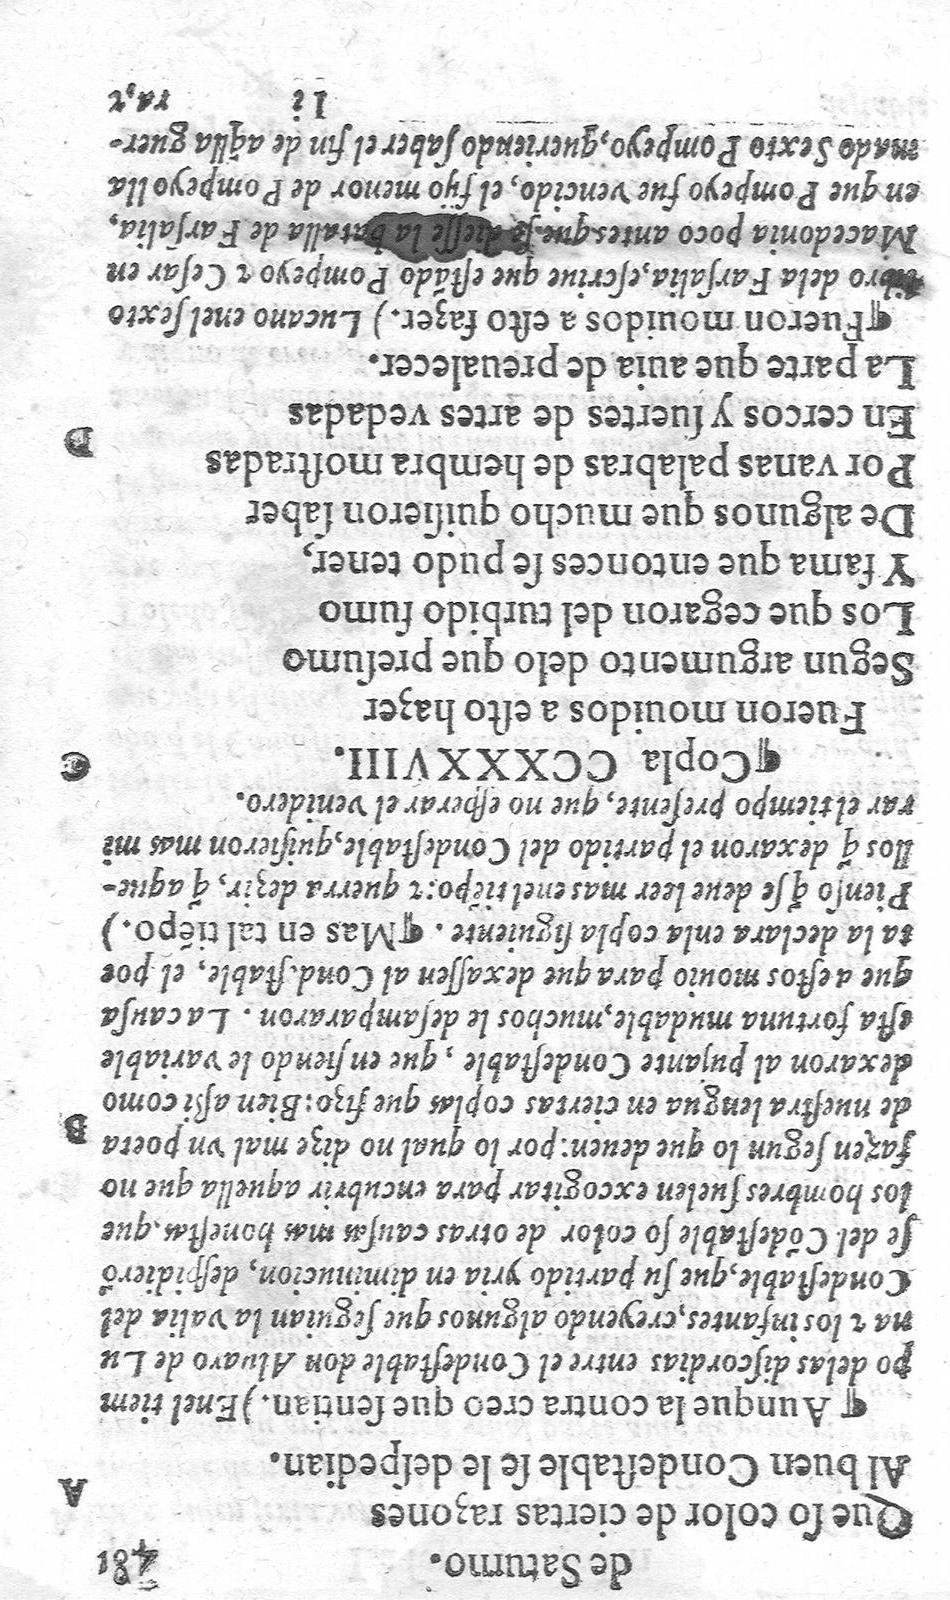 de Saturno. 481
Que ſo color de ciertas razones
A
Al buen Condeſtable ſe le deſpedian.
¶ Aunque la contra creo que ſentian.) Enel tiem
po delas diſcordias entre el Condeſtable don Aluaro de Lu
na ⁊ los infantes, creyendo algunos que ſeguian la valia del
Condeſtable, que ſu partido yria en diminucion, deſpidierõ
ſe del Cõdeſtable ſo color de otras cauſas mas honeſtas, que
los hombres ſuelen excogitar para encubrir aquella que no
fazen ſegun lo que deuen: por lo qual no dize mal vn poeta
B
de nueſtra lengua en ciertas coplas que fizo: Bien aſsi como
dexaron al pujante Condeſtable, que en ſiendo le variable
eſta fortuna mudable, muchos le deſampararon. La cauſa
que a eſtos mouio para que dexaſſen al Condeſtable, el poe
ta la declara enla copla ſiguiente. ¶ Mas en tal tiẽpo.)
Pienſo q̃ ſe deue leer mas enel tiẽpo: ⁊ querra dezir, q̃ aque-
llos q̃ dexaron el partido del Condeſtable, quiſieron mas mi
rar el tiempo preſente, que no eſperar el venidero.
¶ Copla CCXXXVIII.
C
Fueron mouidos a eſto hazer
Segun argumento delo que preſumo
Los que cegaron del turbido fumo
Y fama que entonces ſe pudo tener,
De algunos que mucho quiſieron ſaber
Por vanas palabras de hembra moſtradas
D
En cercos y ſuertes de artes vedadas
La parte que auia de preualecer.
¶ Fueron mouidos a eſto fazer.) Lucano en el ſexto
libro dela Farſalia, eſcriue que eſtãdo Pompeyo ⁊ Ceſar en
Macedonia poco antes que ſe dieſſe la batalla de Farſalia,
en que Pompeyo fue vencido, el fijo menor de Pompeyo lla
mado Sexto Pompeyo, queriendo ſaber el fin de aq̃lla guer-
I i ra, ⁊